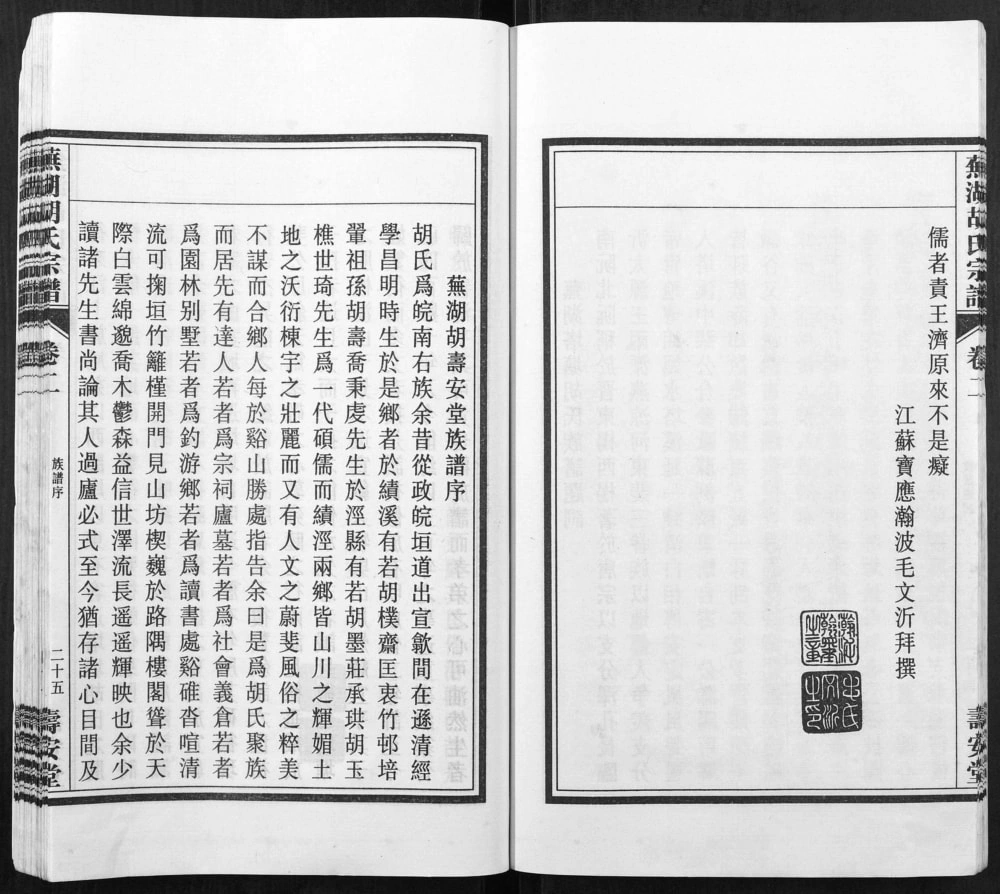 蕪湖胡氏宗譜
卷二
壽安堂
儒者責王濟原來不是癡
江蘇寶應瀚波毛文沂拜撰
毛氏文沂之印
蕪湖胡壽安堂族譜序
胡氏爲皖南右族余昔從政皖垣道出宣歙間在遜清經
學昌明時生於是鄉者於績溪有若胡樸齋匡衷竹邨培
翬祖孫胡壽喬秉虔先生於涇縣有若胡墨莊承珙胡玉
樵世琦先生爲一代碩儒而績涇兩鄉皆山川之輝媚土
地之沃衍棟宇之壯麗而又有人文之蔚斐風俗之粹美
不謀而合鄉人每於谿山勝處指告余曰是爲胡氏聚族
而居先有達人若者爲宗祠廬墓若者爲社會義倉若者
爲園林別墅若者爲釣游鄉若者爲讀書處谿碓沓喧清
流可掬垣竹籬槿開門見山坊楔巍於路隅樓閣聳於天
際白雲綿邈喬木鬱森益信世澤流長遥遥輝映也余少
讀諸先生書尚論其人過廬必式至今猶存諸心目間及
蕪湖胡氏宗譜
卷二
族譜序
二十五
壽安堂